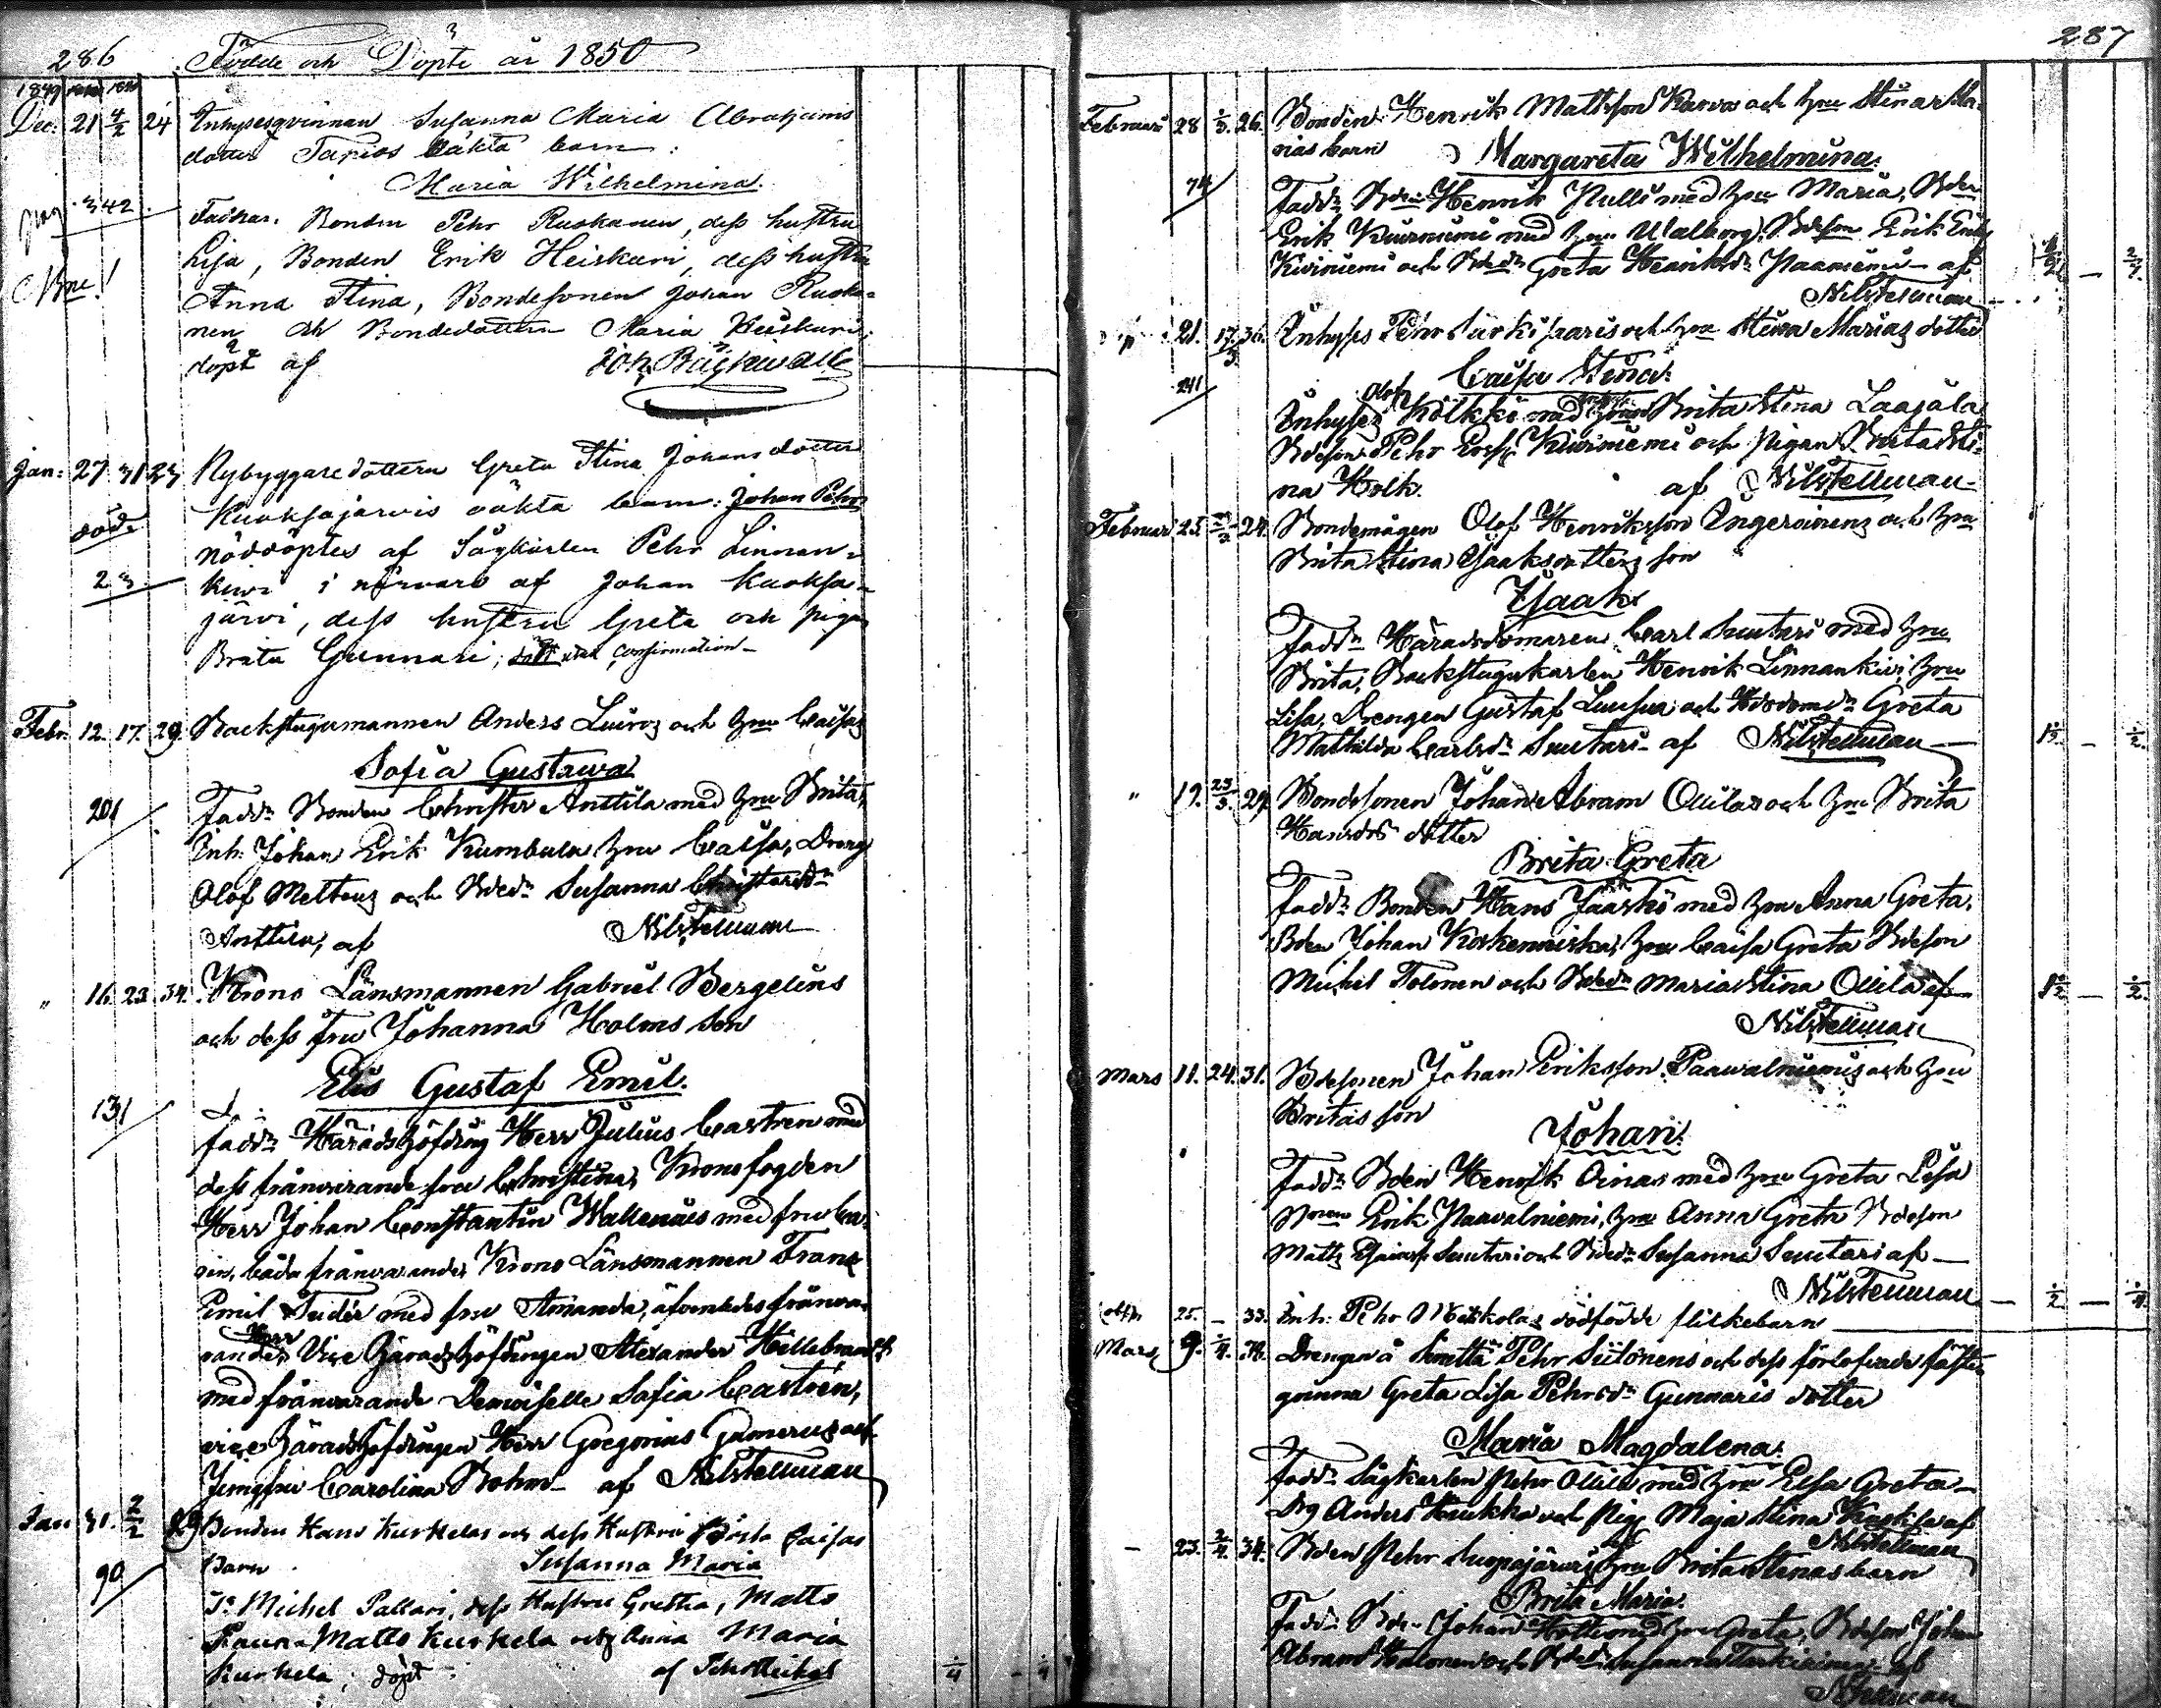 286 Födde och Döpte år 1850
1849
Dec. 21 4/2 24 Inhysesqvinnan Susanna Maria Abrahams
dotter oäkta barn:
Maria Wilhelmina.
342 Faddrar. Bonden Pehr Ruokanen, dess hustru
Lisa, Bonden Erik Heiskari, dess hustru
Anna Stina, Bondesonen Johan Ruoka-
nen och Bondedottern Maria Heiskari;
döpt af
Jan: 27 31 23 Nybyggaredottern Greta Stina Johansdotter
Kuoksajärvis oäkta barn: Johan Pehr,
död
nöddöptes af Sågkarlen Pehr Linnan-
23 kivi i närvaro af Johan Kuoksa-
järvi, dess hustru Greta och pigan
Brita Gunnari; confirmation
Febr. 12. 17. 29. Backstugumannen Anders och hru Caisas
Sofia Gustava
201 Faddr Bonden Christer Anttila med hru Brita,
Inh: Johan Erik Kumbula hru Caisa, Dreng
Olof och Bdedr Susanna Christersdr
Anttila, af NilsFellman
" 16. 23. 34. Krono Länsmannen Gabriel Bergelins
och dess fru Johanna Holms son
Elis Gustaf Emil.
131 faddr Häradshöfding Herr Julius Castren med
dess frånvarande fru Christina, Kronofogden
Herr Johan Constantin Wallenius med fru Ca-
rin, båda frånvarande, Krono Länsmannen Frans
Emil Tudér med fru Amanda, äfvenledes frånva-
rande, Herr Vice Häradshöfdingen Alexander Hillebrandt
med frånvarande Demoiselle Sofia Castrén,
vice Häradshöfdingen Herr Gregorius Gumerus och
Jungfru Carolina Bohm af NilsFellman
Jan 31. 2/2 29 Bonden Hans Kurkelas och dess Hustru Brita Caisas
barn Susanna Maria
90 Fr Michel Pallari, dess Hustru Gretha, Matts
Matts Kurkela och Anna Maria
Kurkela; döpt af
1/4 1/4
287
Februari 28 1/3. 26. Bonden Henrik Mattsson Karvos och hru Stina Ma-
rias barn Margareta Wilhelmina.
74 Faddr Bden Henrik Pulli med hru Maria, Bden
Erik Kiviniemi med hru Walborg, Bdeson Erik Eriks
Kiviniemi och Bdedr Greta Henriksdr Paaniemi af
NilsFellman
21. 17/3. 36. Inhyses Pehr och hru Stina Marias dotter
Caisa Stina.
241 Inhyses Olof Kilkki med hru Brita Stina Laajala
Bdeson Pehr Kiviniemi och pigan Brita Sti-
na Holk. af NilsFellman
Februar 25. 24. Bondemågen Olof Henriksson Ingeroinens och hru
Brita Stina Isaksdotters son
Isaak
Faddr Häradsdomaren Carl Suutari med hru
Brita, Backstugukarlen Henrik Linnankivi, hru
Lisa, Drengen Gustaf Luusua och Greta
Mathilda Carlsdr Suutari af NilsFellman
" 19. 23/3. 29. Bondesonen Johan Abram Ollilas och hru Brita
Hansdrs dotter
Brita Greta
Faddr Bonden Hans Jääskö med hru Anna Greta,
Bden Johan Koskenniska, hru Caisa Greta Bdeson
Michel Tolonen och Bdedr Maria Stina Ollila af
NilsFellman
Mars 11. 24. 31. Bdesonen Johan Eriksson Paavalniemis och hru
Britas son
Johan.
Faddr Bden Henrik Oinas med hru Greta Lisa
Erik Paavalniemi, hru Anna Greta Bdeson
Matts Suutari och Bdedr Susanna Suutari af
NilsFellman
25. – 33. Inh: Pehr Mikkolas dödfödde flickebarn
Mars 9. Drengen å Pehr Siitonens och dess förlofvade fäste-
qvinna Greta Lisa Pehrsdr Gunnaris dotter
Maria Magdalena.
Faddr Sågkarlen Pehr Ollila med hru Elsa Greta
Drg Anders Kukko och Pig Maja Stina af
NilsFellman
– 23. 2/4. 34. Bden Pehr Suopajärvis hru Brita Stinas barn
Brita Maria.
Faddr Bden Johan med hru Greta, Bdeson Johan
Abram Halonen och Bdedr Susanna af
NFellman